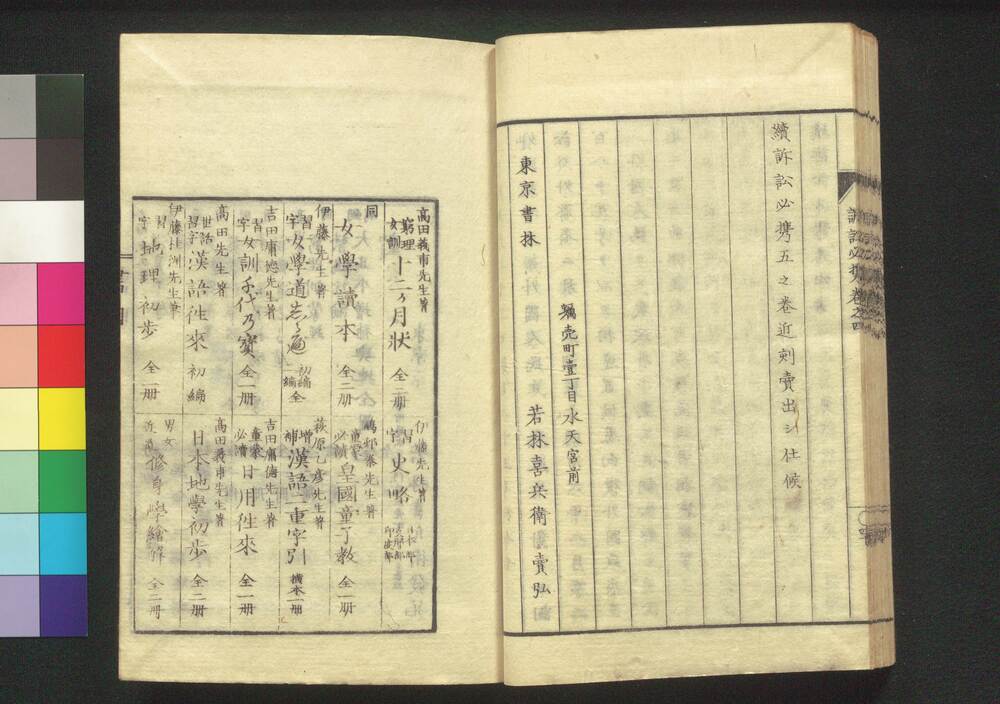 續訴訟必携五之巻近刻賣出シ仕候
東京書林
蠣売町壹丁目水天宮前
若林喜兵衛
賣弘
高田義甫先生著
窮理女訓
十二ヶ月状
全二册
同
女學讀本
全二册
伊藤先生著
習字
女學道志る遍
初編二編
全
吉田庸德先生著
習字
女訓千代乃寳
全一册
高田先生著
世話習字
漢語徃來
初編
伊藤桂洲先生筆
習字
地理初歩
全一册
伊藤先生著
習字
史略
童蒙必讀
皇國童子教
全一册
萩原乙彦先生著
増補
漢語二重字引
横本一册
吉田庸德先生著
童蒙必讀
日用徃來
全一册
高田義甫先生著
日本地學初歩
全二册
男女
修身學繪解
全二册